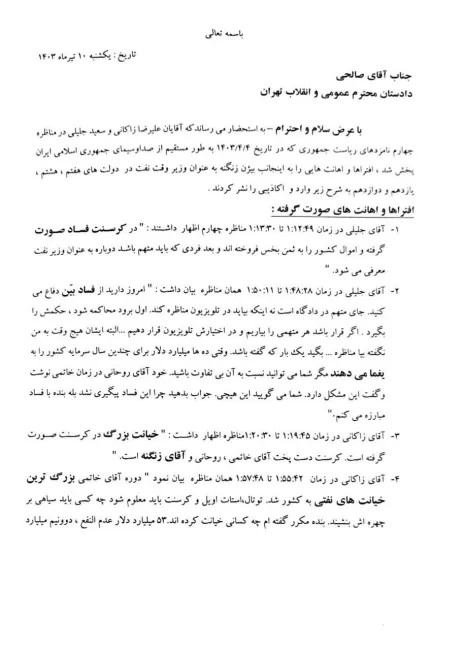 باسمه تعالی
تاریخ : یکشنبه ۱۰ تیرماه ۱۴۰۳
جناب آقای صالحی
دادستان محترم عمومی و انقلاب تهران
با عرض سلام و احترام – به استحضار می رساند که آقایان علیرضا زاکانی و سعید جلیلی در مناظره
چهارم نامزدهای ریاست جمهوری که در تاریخ ۱۴۰۳/۴/۴ به طور مستقیم از صداوسیمای جمهوری اسلامی ایران
پخش شد ، افتراها و اهانت هایی را به اینجانب بیژن زنگنه به عنوان وزیر وقت نفت در دولت های هفتم ، هشتم ،
یازدهم و دوازدهم به شرح زیر وارد و اکاذیبی را نشر کردند .
افتراها و اهانت های صورت گرفته :
۱- آقای جلیلی در زمان ۱:۱۲:۴۹ تا ۱:۱۳:۳۰ مناظره چهارم اظهار داشتند : " در کرسنت فساد صورت
گرفته و اموال کشور را به ثمن بخس فروخته اند و بعد فردی که باید متهم باشد دوباره به عنوان وزیر نفت
معرفی می شود . "
۲- آقای جلیلی در زمان ۱:۴۸:۲۸ تا ۱:۵۰:۱۱ همان مناظره بیان داشت : " امروز دارید از فساد بیّن دفاع می
کنید. جای متهم در دادگاه است نه اینکه بیاید در تلویزیون مناظره کند. اول برود محاکمه شود ، حکمش را
بگیرد . اگر قرار باشد هر متهمی را بیاریم و در اختیارش تلویزیون قرار دهیم ...البته ایشان هیچ وقت به من
نگفته بیا مناظره ... بگید یک بار که گفته باشد. وقتی ده ها میلیارد دلار برای چندین سال سرمایه کشور را به
یغما می دهند مگر شما می توانید نسبت به آن بی تفاوت باشید. خود آقای روحانی در زمان خاتمی نوشت
وگفت این مشکل دارد. شما می گویید این هیچی. جواب بدهید چرا این فساد پیگیری نشد بله بنده با فساد
مبارزه می کنم."
۳- آقای زاکانی در زمان ۱:۱۹:۴۵ تا ۱:۲۰:۳۰مناظره اظهار داشت : " خیانت بزرگ در کرسنت صورت
گرفته است. کرسنت دست پخت آقای خاتمی ، روحانی و آقای زنگنه است . "
۴- آقای زاکانی در زمان ۱:۵۵:۴۲ تا ۱:۵۷:۴۸ همان مناظره بیان نمود " دوره آقای خاتمی بزرگ ترین
خیانت های نفتی به کشور شد. توتال،استات اویل و کرسنت باید معلوم شود چه کسی باید سیاهی بر
چهره اش بنشیند. بنده مکرر گفته ام چه کسانی خیانت کرده اند.۵۳ میلیارد دلار عدم النفع ، دوونیم میلیارد